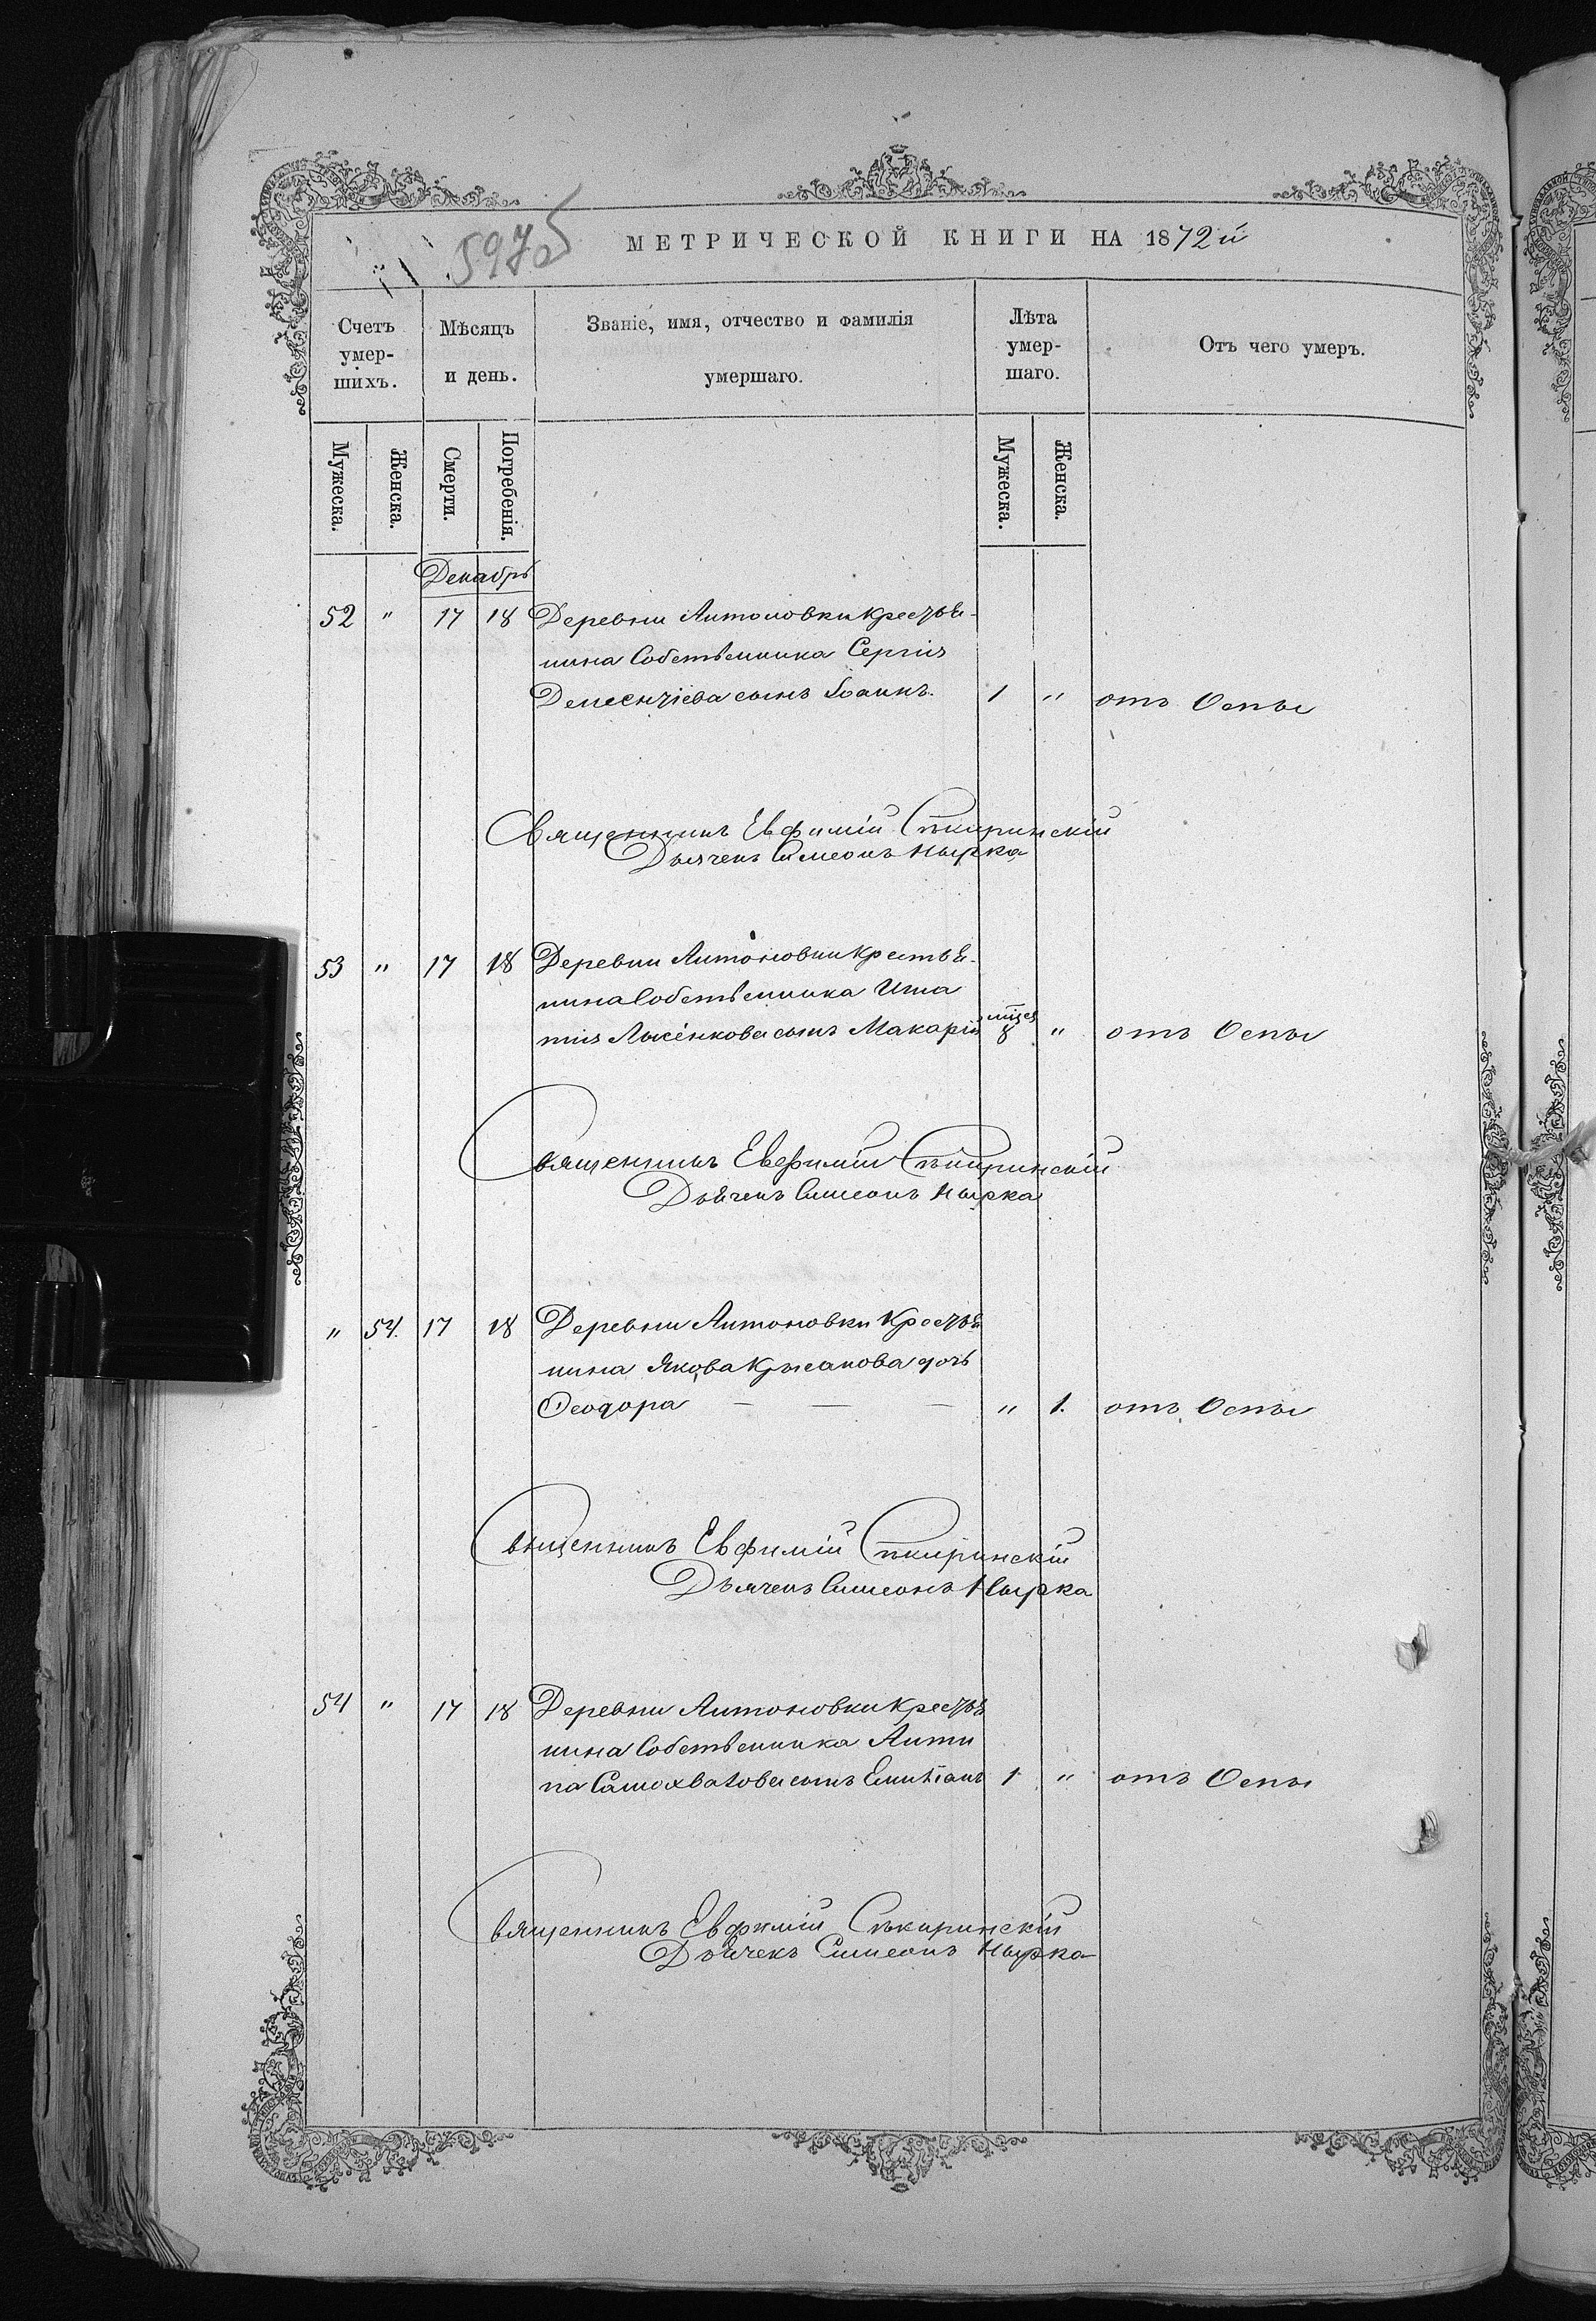 597об
МЕТРИЧЕСКОЙ КНИГИ НА 1872й
Счетъ умер-шихъ. Мѣсяцъ и день. Званіе, имя, отчество и фамилія умершаго. Лѣта умер-шаго. Отъ чего умеръ.
Мужеска. Женска. Смерти. Погребенія. Мужеска. Женска.
Декабрь
52 " 17 18 Деревни Антоновки Крестья-
нина Собственника Сергія
сынъ Іоаннъ. 1 " отъ Оспы
Священникъ Евфимій Сѣкиринскій
Дьячекъ Симеонъ Нырка
53 " 17 18 Деревни Антоновки Крестья-
нина Собственника Игна
тія Лысенкова сынъ Макарій мцев 8 " отъ Оспы
Священникъ Евфимій Сѣкиринскій
Дьячекъ Симеонъ Нырка
" 54. 17 18 Деревни Антоновки Крестья
нина Якова Крысанова дочь
Ѳеодора — — — " 1. отъ Оспы
Священникъ Евфимій Сѣкиринскій
Дьячекъ Симеонъ Нырка
54 " 17 18 Деревни Антоновки Крестья
нина Собственника Анти
па Самохватова сынъ Емиліанъ 1 " отъ Оспы
Священникъ Евфимій Сѣкиринскій
Дьячекъ Симеонъ Нырка